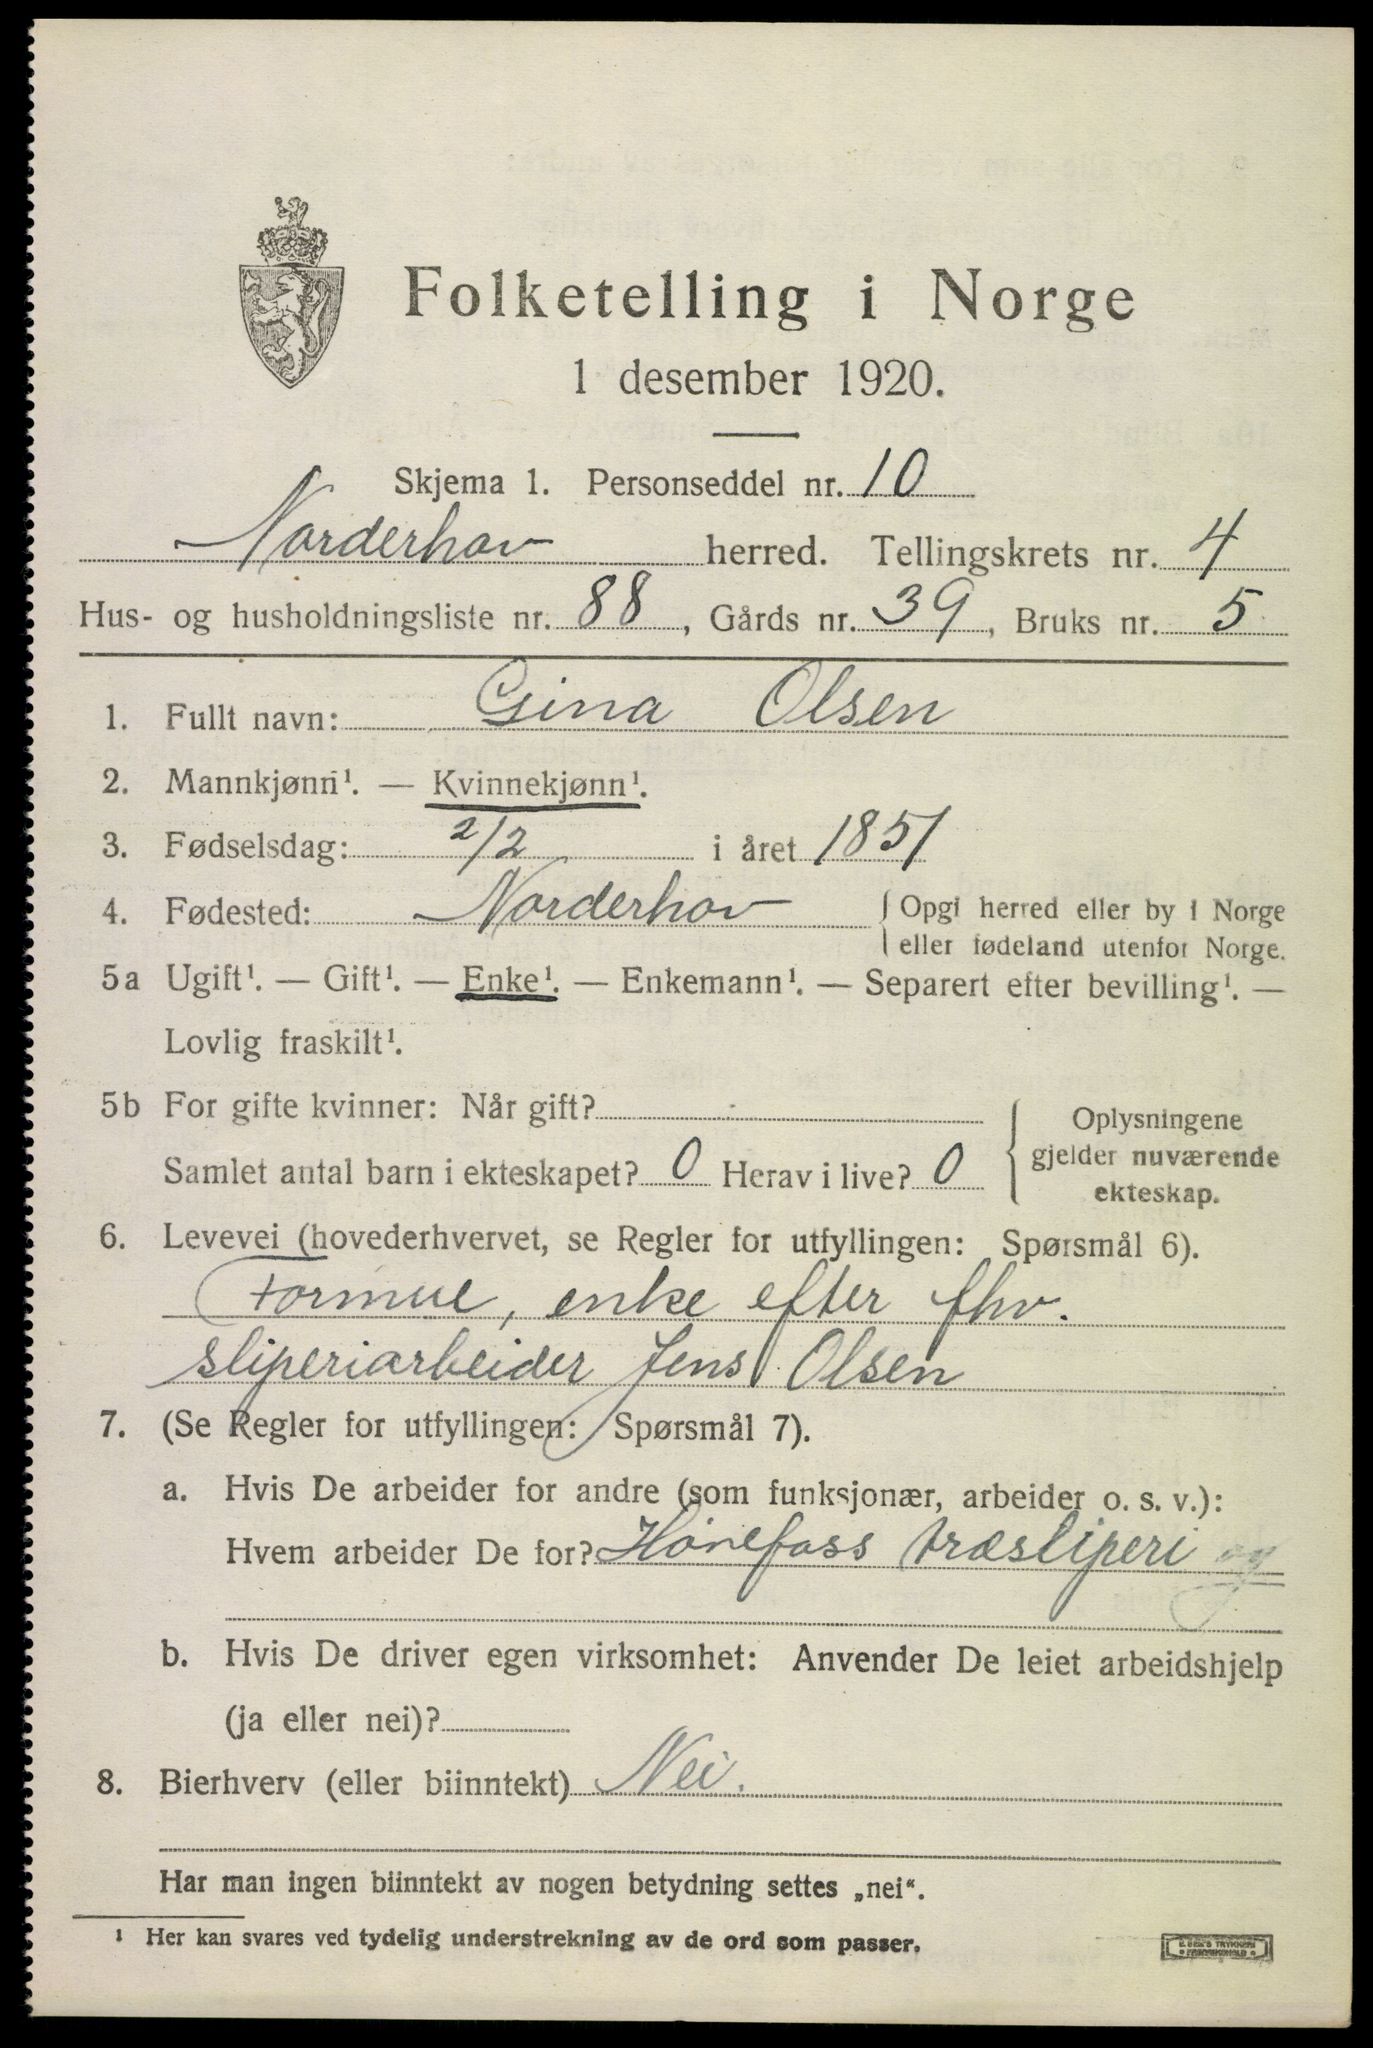 Folketelling i Norge
1 desember 1920.
Skjema 1. Personseddel nr. 10
Norderhov herred. Tellingskrets nr. 4
Hus- og husholdningsliste nr. 88, Gårds nr. 39, Bruks nr. 5
1. Fullt navn: Gina Olsen
2. Mannkjønn¹. — Kvinnekjønn¹.
3. Fødselsdag: 2/2 i året 1851
4. Fødested: Norderhov { Opgi herred eller by i Norge
eller fødeland utenfor Norge.
5a Ugift¹. — Gift¹. — Enke¹. — Enkemann¹. — Separert efter bevilling¹. —
Lovlig fraskilt¹.
5b For gifte kvinner: Når gift?
Samlet antal barn i ekteskapet? 0 Herav i live? 0
Oplysningene
gjelder nuværende
ekteskap.
6. Levevei (hovederhvervet, se Regler for utfyllingen: Spørsmål 6).
Formue, enke efter fhv.
sliperiarbeider Jens Olsen
7. (Se Regler for utfyllingen: Spørsmål 7).
a. Hvis De arbeider for andre (som funksjonær, arbeider o. s. v.):
Hvem arbeider De for? Hønefoss træsliperi og
b. Hvis De driver egen virksomhet: Anvender De leiet arbeidshjelp
(ja eller nei)?
8. Bierhverv (eller biinntekt) Nei.
Har man ingen biinntekt av nogen betydning settes „nei“.
¹ Her kan svares ved tydelig understrekning av de ord som passer.